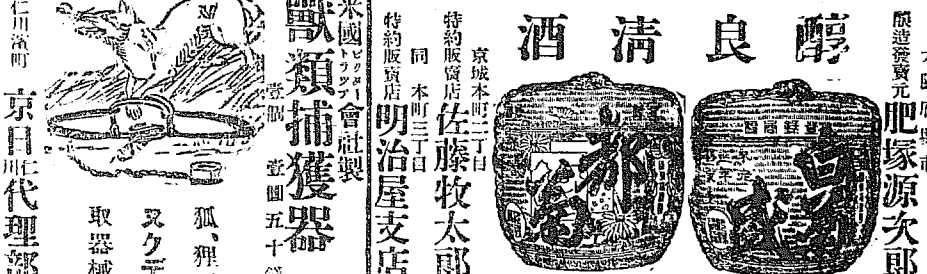 釀造發賣元 肥塚源次郎
醇良清酒
都菊
京城本町二丁目
特約販賣店 佐藤牧太郎
同 本町三丁目
特約販賣店 明治屋支店
米國ビクタートラップ會社製
獸類捕獲器
壹個 壹圓五十錢
狐、狸
ヌクテ
取器械
仁川濱町
京日仁川代理部